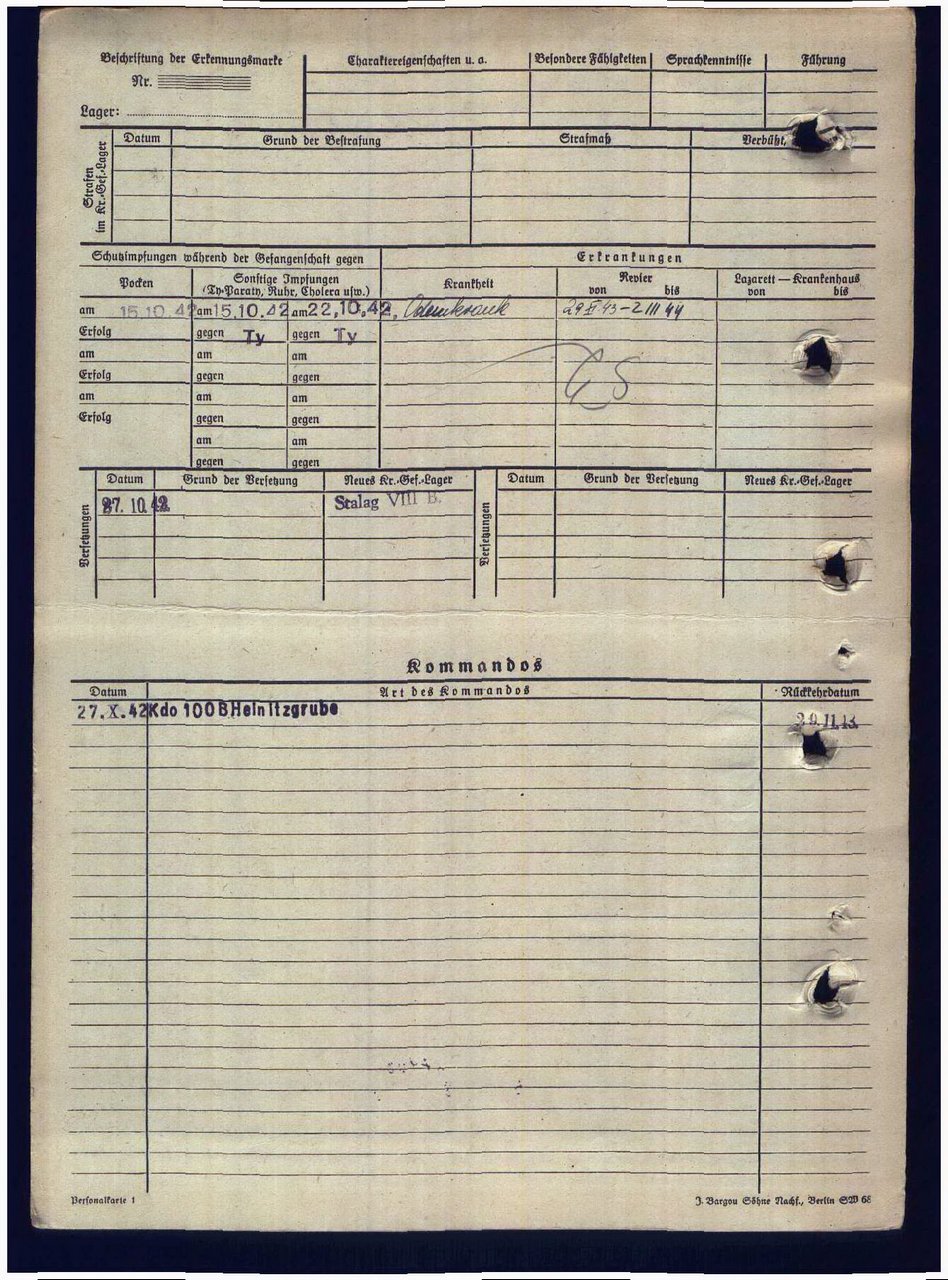 Beschriftung der Erkennungsmarke
Nr.
Lager:
Charaktereigenschaften u. a.
Besondere Fähigkeiten
Sprachkenntnisse
Führung
Strafen
im Kr.-Gef.-Lager
Datum
Grund der Bestrafung
Strafmaß
Verbüßt,
Schutzimpfungen während der Gefangenschaft gegen
Erkrankungen
Pocken
Sonstige Impfungen
(Ty-Paraty, Ruhr, Cholera usw.)
Krankheit
Revier
von bis
Lazarett — Krankenhaus
von bis
am 15.10.42 am 15.10.42 am 22.10.42, Ödemkrank 29 XI 43 – 2 III 44
Erfolg gegen Ty gegen Ty
am am am
Erfolg gegen gegen
am am am
Erfolg gegen gegen
am am
gegen gegen
Versetzungen
Datum Grund der Versetzung Neues Kr.-Gef.-Lager
27.10.42 Stalag VIII B.
Versetzungen
Datum Grund der Versetzung Neues Kr.-Gef.-Lager
Kommandos
Datum Art des Kommandos Rückkehrdatum
27.X.42 Kdo 100 B Heinitzgrube
Personalkarte 1
J. Bargou Söhne Nachf., Berlin SW 68